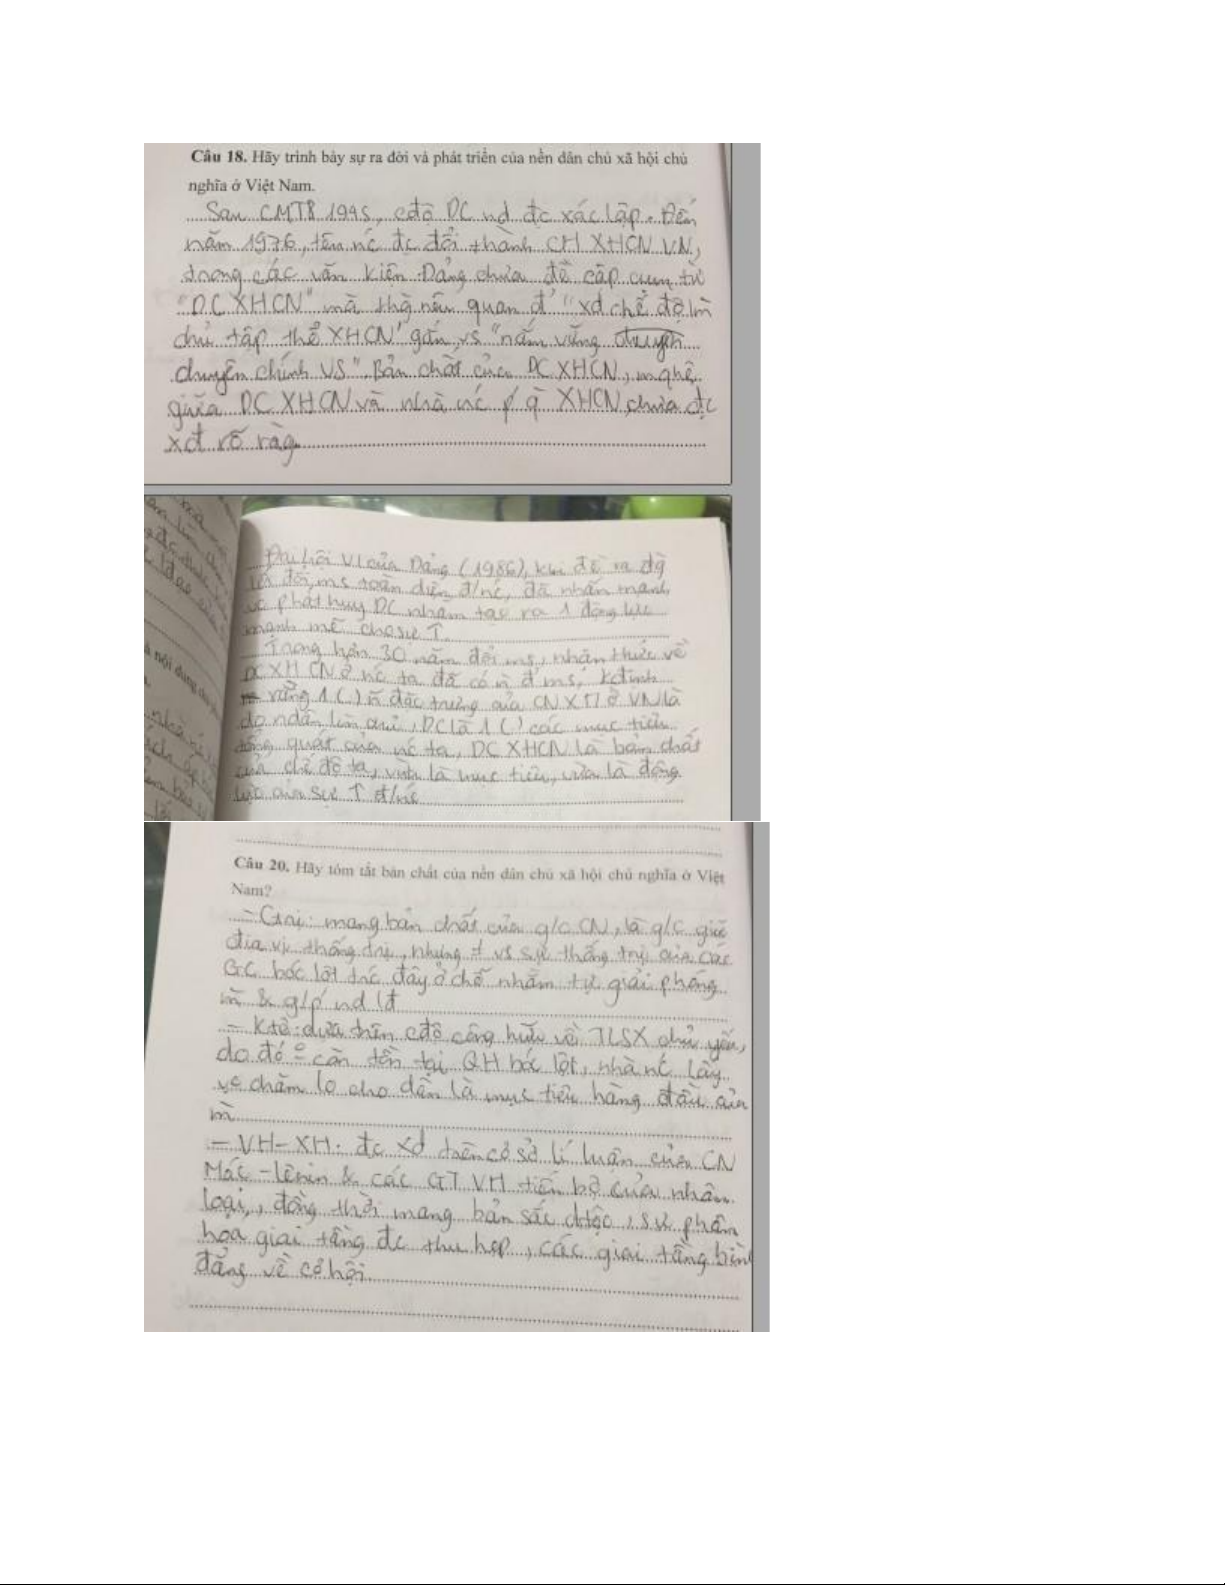 Câu 18. Hãy trình bày sự ra đời và phát triển của nền dân chủ xã hội chủ
nghĩa ở Việt Nam.
Sau CMT8 1945, cđộ DC nd đc xác lập. Đến
năm 1976, tên nc đc đổi thành CH XHCN VN,
trong các văn kiện Đảng chưa đề cập cụm từ
"DC XHCN" mà thg nêu quan đ' "xd chế độ lm
chủ tập thể XHCN" gắn vs "nắm vững
chuyên chính VS". Bản chất của DC XHCN, mqhệ
giữa DC XHCN và nhà nc p' q̀ XHCN chưa đc
xđ rõ ràg
Đại hội VI của Đảng (1986), khi đề ra đg
lối đổi ms toàn diện đ/nc, đã nhấn mạnh
vc phát huy DC nhằm tạo ra 1 động lực
mạnh mẽ cho sự T.
Trong hơn 30 năm đổi ms, nhận thức về
DC XHCN ở nc ta đã có n đ' ms, kđịnh
rằng 1 ( ) n đặc trưng của CNXH ở VN là
do ndân làm chủ, DC là 1 ( ) các mục tiêu
tổng quát của nc ta, DC XHCN là bản chất
của chế độ ta, vừa là mục tiêu, vừa là động
lực của sự T đ/nc
à nội dung
nhà nc
Câu 20. Hãy tóm tắt bản chất của nền dân chủ xã hội chủ nghĩa ở Việt
Nam?
mang bản chất của g/c CN, là g/c giữ
địa vị thống trị, nhưng ≠ vs sự thống trị của các
GC bóc lột trc đây ở chỗ nhằm tự giải phóng
m̀ & g/p' nd lđ
- Ktế: dựa trên cđộ công hữu về TLSX chủ yếu,
do đó o còn tồn tại QH bóc lột, nhà nc lấy
vc chăm lo cho dân là mục tiêu hàng đầu của
m̀
- VH-XH: đc xd trên cơ sở lí luận của CN
Mác-Lênin & các GT VH tiến bộ của nhân
loại, đồng thời mang bản sắc dtộc, sự phân
hóa giai tầng đc thu hẹp, các giai tầng bình
đẳng về cơ hội